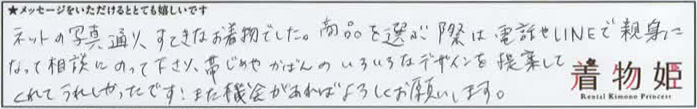 ★メッセージをいただけるととても嬉しいです
ネットの写真通り、すてきなお着物でした。商品を選ぶ際は電話やLINEで親身に
なって相談にのって下さり、帯じめやかばんのいろいろなデザインを提案して
くれてうれしかったです！また機会があればよろしくお願いします。
着物姫
Rental Kimono Princess